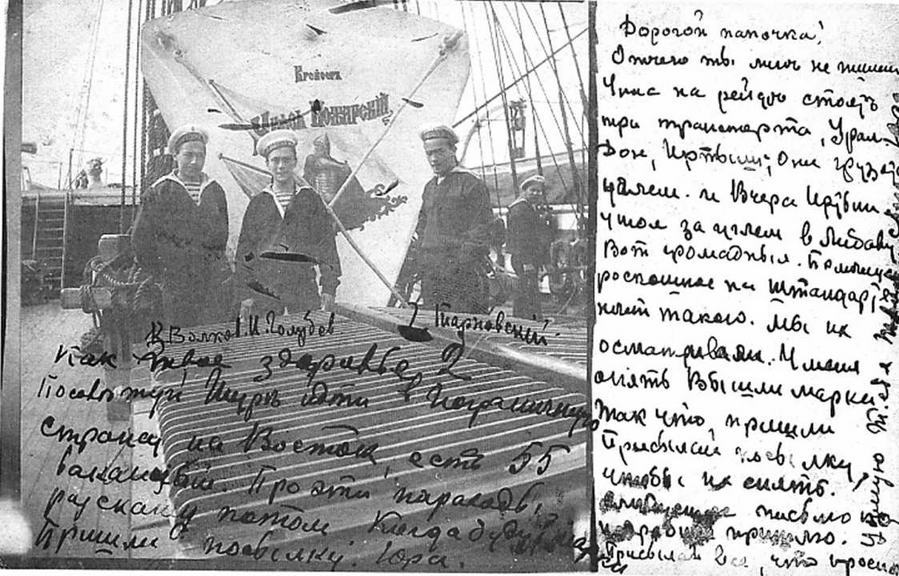 Крейсеръ
Князь Пожарскій
В Волковъ. И. Голубовъ
Тарновскій.
Как твое здоровье?
Посоветуй Шуръ идти в Пограничную
стражу на Востокъ, есть 55
вакансiй. Про эти пароходы
раускажу потом когда буду
Пришли посылку. Юра.
Дорогой папочка!
Отчего ты мнѣ не пишешь
У насъ на рейдѣ стоятъ
три транспорта, Уралъ
Дон, Иртышъ; Они грузятъ
углем. и Вчера Иртыш
ушол за углем в Либаву
Вот громадны.
роскошное на штандартѣ
нѣт такого. Мы их
осматривали. У меня
опять Вышли марки
так что, пришли
Присылай посылку,
чтобы их снять.
письмо
пришлю.
Присылай все, что просил
Цѣлую